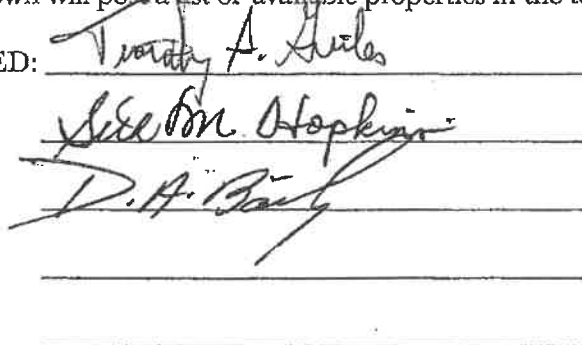 own will post a list of available properties in the t
ED: Timothy A. Guiles
M. Hopkins
D. A.